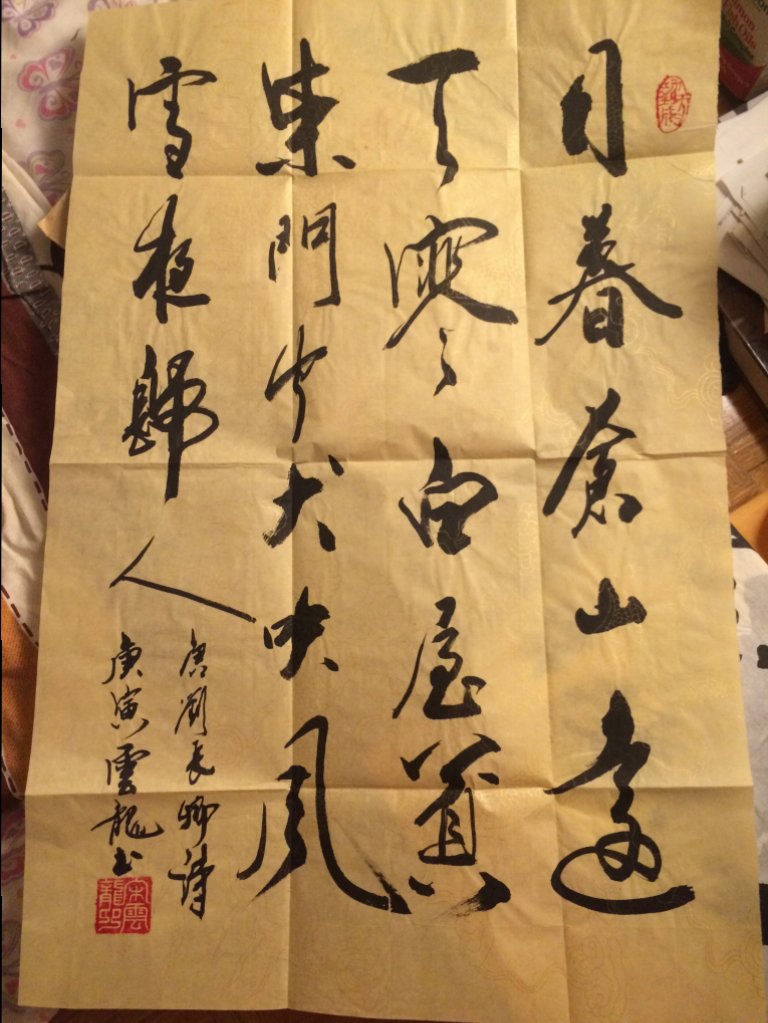 日暮蒼山遠
天寒白屋貧
柴門聞犬吠風
雪夜歸人
唐劉長卿詩
庚寅雲龍書
宋雲龍印
Oils